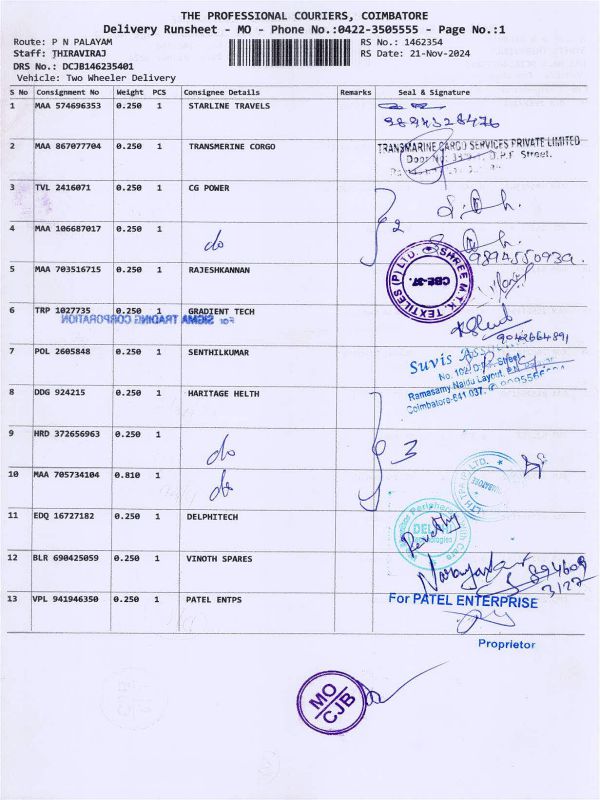 THE PROFESSIONAL COURIERS, COIMBATORE
Delivery Runsheet - MO - Phone No.:0422-3505555 - Page No.:1
Route: P N PALAYAM
RS No.: 1462354
Staff: THIRAVIRAJ
RS Date: 21-Nov-2024
DRS No.: DCJB146235401
Vehicle: Two Wheeler Delivery
S No Consignment No Weight PCS Consignee Details Remarks Seal & Signature
1 MAA 574696353 0.250 1 STARLINE TRAVELS
9894328476
2 MAA 867077704 0.250 1 TRANSMERINE CORGO
TRANSMARINE CARGO SERVICES PRIVATE LIMITED
Door No. D.P.F Street.
3 TVL 2416071 0.250 1 CG POWER
2
4 MAA 106687017 0.250 1 do
9894550939.
SHREE M.T.K. TEXTILES (P) LTD.
CBE-37.
5 MAA 703516715 0.250 1 RAJESHKANNAN
6 TRP 1027735 0.250 1 GRADIENT TECH
For SIGMA TRADING CORPORATION
9042664891
7 POL 2605848 0.250 1 SENTHILKUMAR
Suvis
No. 102, Street
Ramasamy Naidu Layout,
Coimbatore-641 037.
8 DDG 924215 0.250 1 HARITAGE HELTH
9 HRD 372656963 0.250 1 do
3
10 MAA 705734104 0.810 1 do
11 EDQ 16727182 0.250 1 DELPHITECH
Revathy
12 BLR 690425059 0.250 1 VINOTH SPARES
894609
3127
13 VPL 941946350 0.250 1 PATEL ENTPS
For PATEL ENTERPRISE
Proprietor
MO
CJB